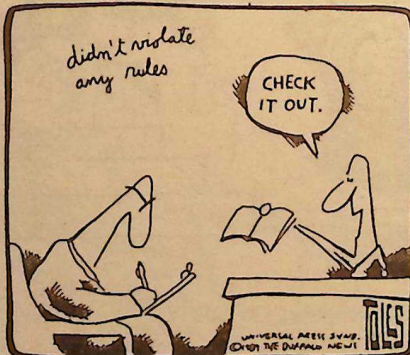 didn't violate
any rules
CHECK
IT OUT.
UNIVERSAL PRESS SYND.
THE BUFFALO NEWS
TOLES